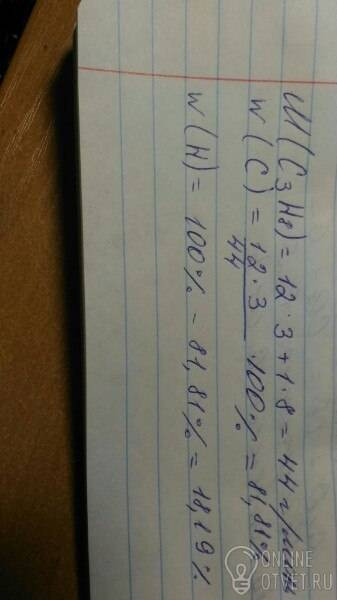 M(C3H8) = 12·3+1·8 = 44 г/моль
w(C) = 12·3/44 · 100% = 81,81%
w(H) = 100% - 81,81% = 18,19%
ONLINE
OTVET.RU